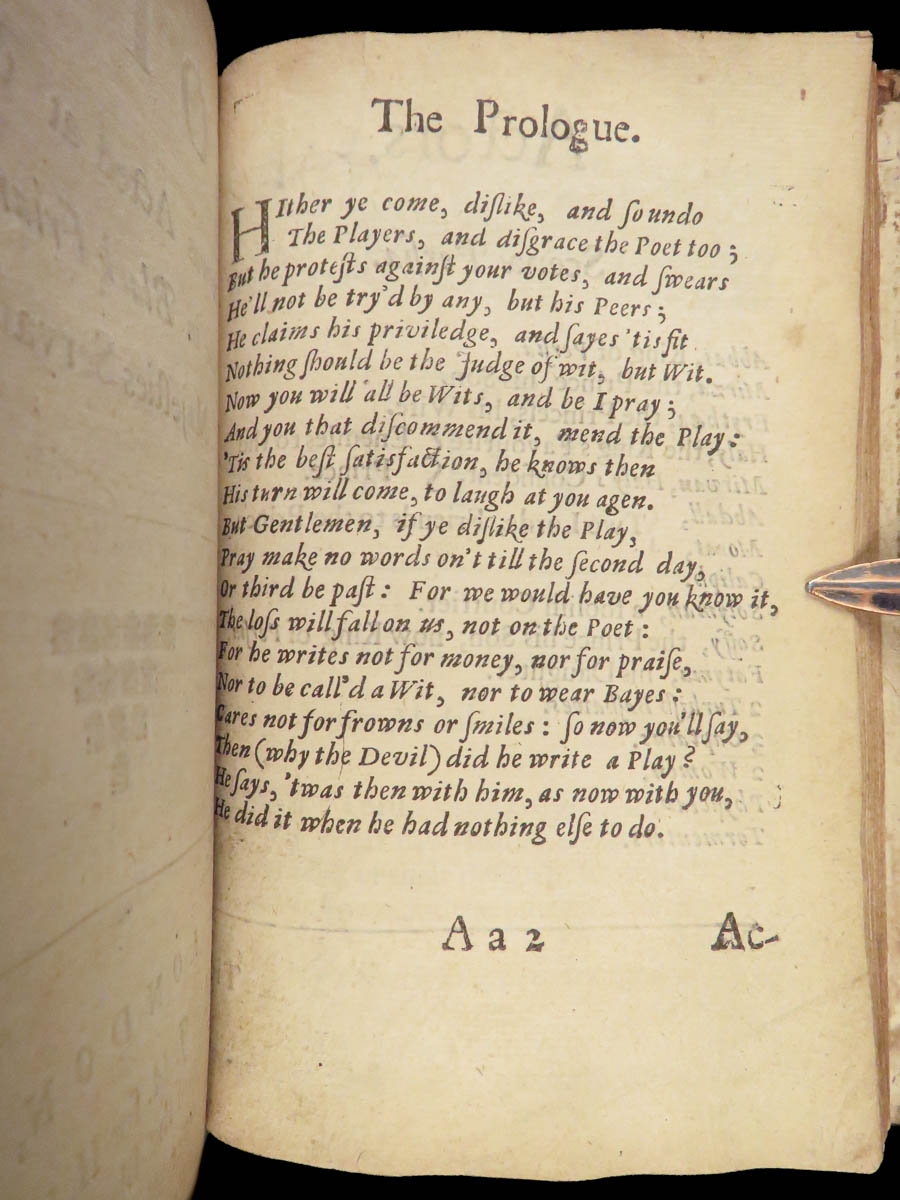 The Prologue.
HIther ye come, diſlike, and ſo undo
The Players, and diſgrace the Poet too;
But he proteſts againſt your votes, and ſwears
He'll not be try'd by any, but his Peers;
He claims his priviledge, and ſayes 'tis fit
Nothing ſhould be the Judge of wit, but Wit.
Now you will all be Wits, and be I pray;
And you that diſcommend it, mend the Play:
'Tis the beſt ſatisfaction, he knows then
His turn will come, to laugh at you agen.
But Gentlemen, if ye diſlike the Play,
Pray make no words on't till the ſecond day,
Or third be paſt: For we would have you know it,
The loſs will fall on us, not on the Poet:
For he writes not for money, nor for praiſe,
Nor to be call'd a Wit, nor to wear Bayes:
Cares not for frowns or ſmiles: ſo now you'll ſay,
Then (why the Devil) did he write a Play?
He ſays, 'twas then with him, as now with you,
He did it when he had nothing elſe to do.
A a 2 Ac-